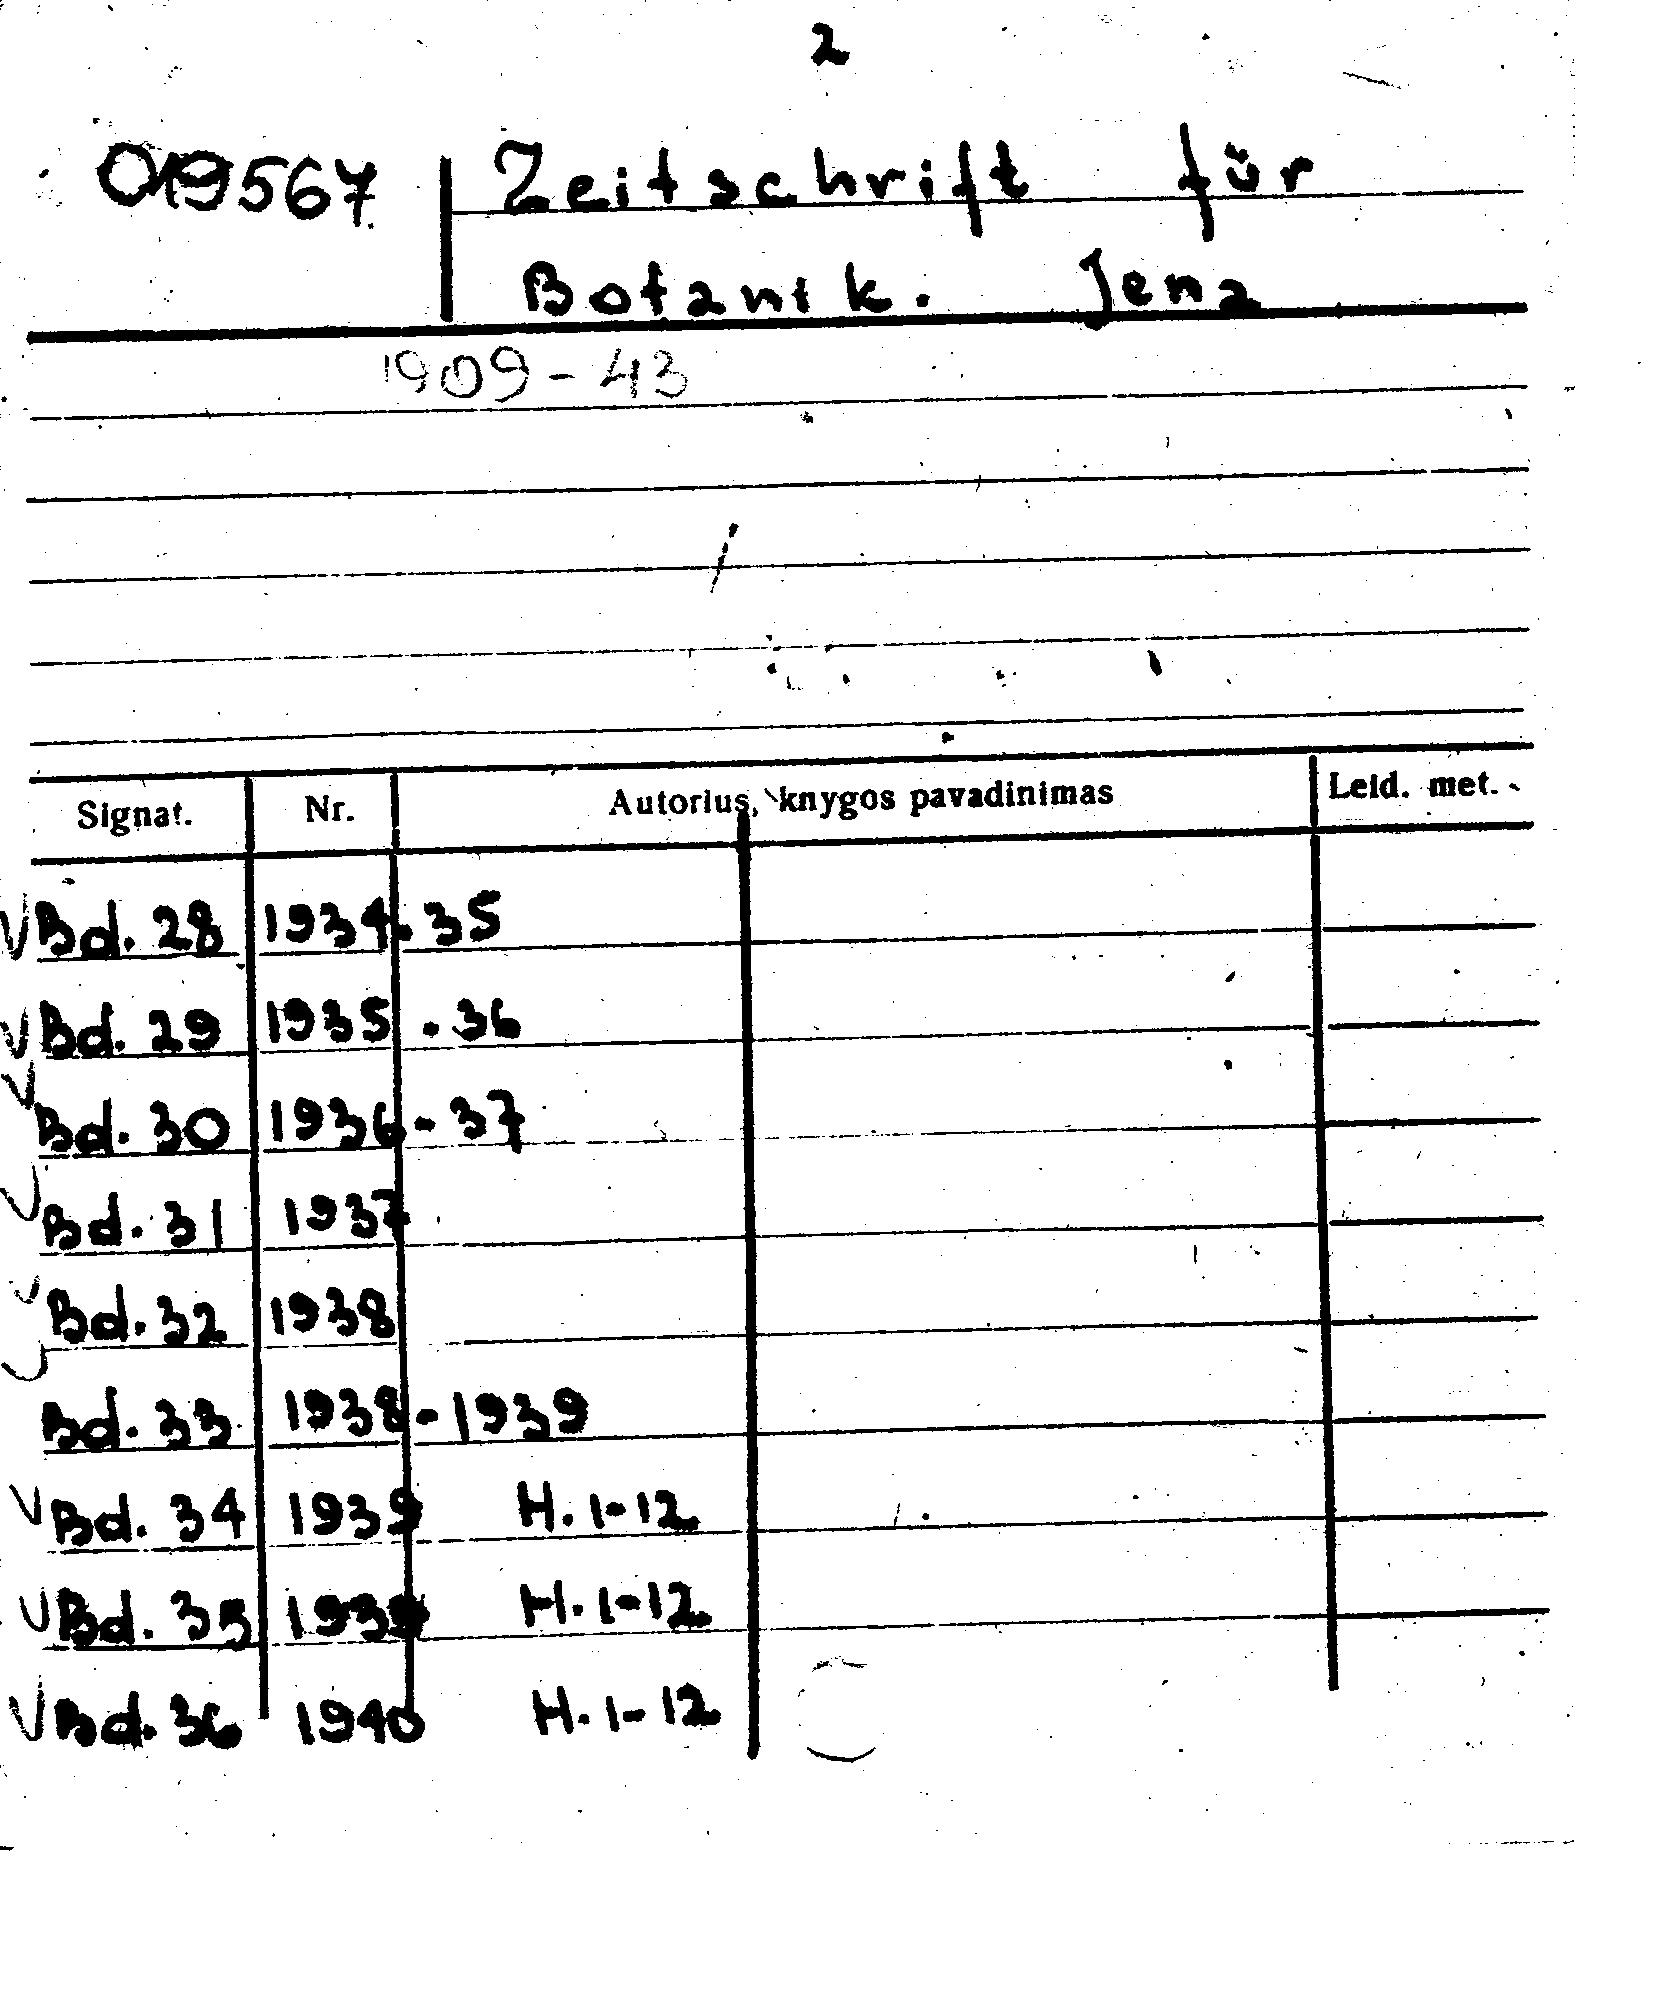 2
019567 Zeitschrift für
Botanik. Jena
1909-43
Signat. Nr. Autorius, knygos pavadinimas Leid. met.
V Bd. 28 1934-35
V Bd. 29 1935-36
V Bd. 30 1936-37
V Bd. 31 1937
V Bd. 32 1938
V Bd. 33 1938-1939
V Bd. 34 1939 H. 1-12
V Bd. 35 1939 H. 1-12
V Bd. 36 1940 H. 1-12